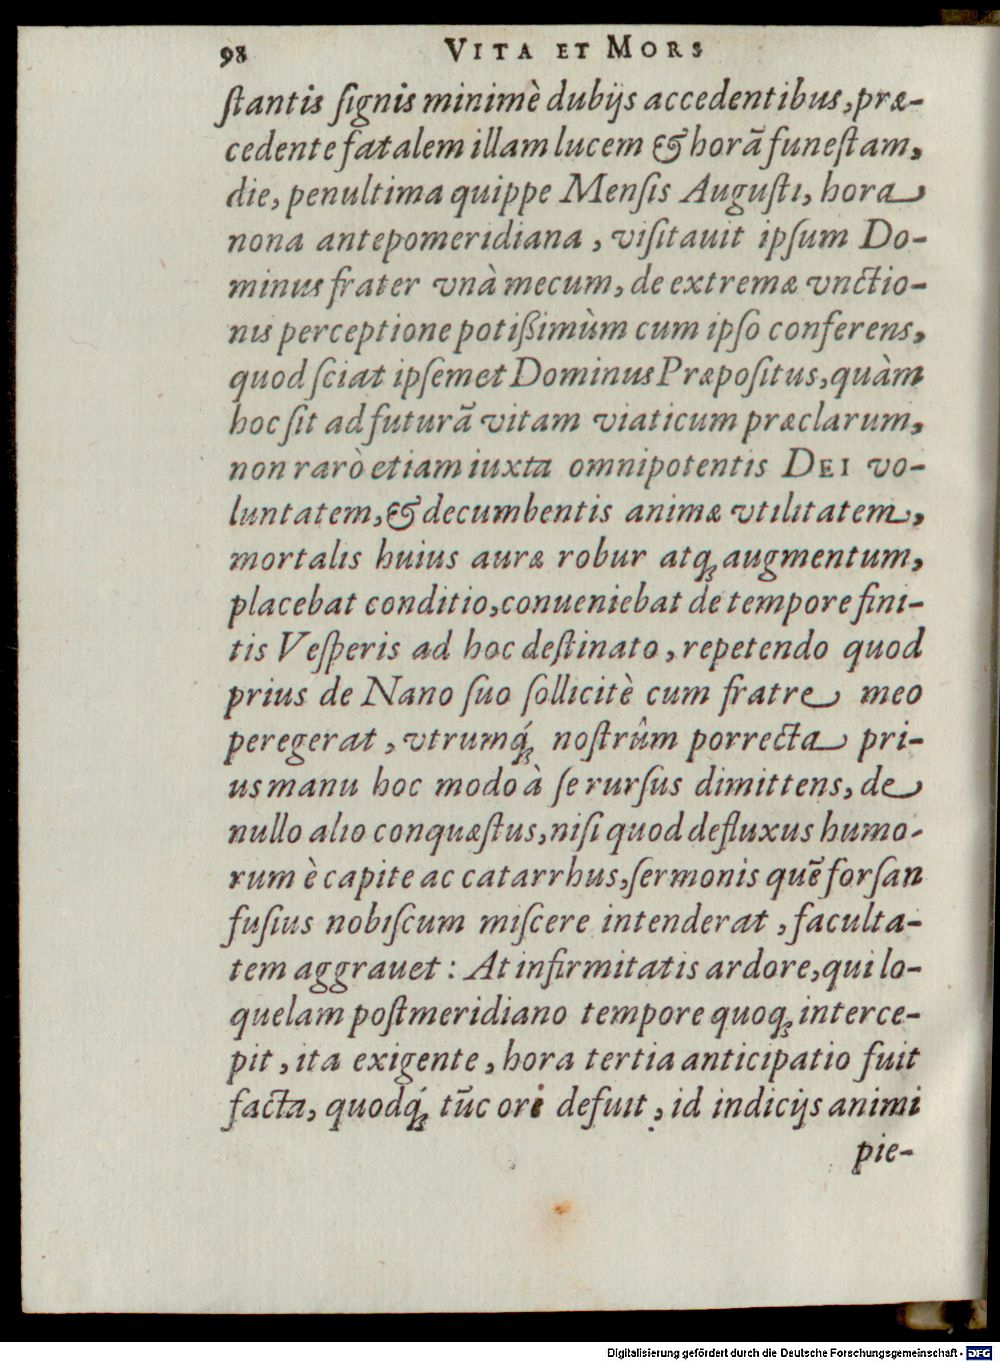 98 VITA ET MORS
ſtantis ſignis minimè dubijs accedentibus, præ-
cedente fatalem illam lucem & horã funeſtam,
die, penultima quippe Menſis Auguſti, hora
nona antepomeridiana, viſitauit ipſum Do-
minus frater vnà mecum, de extremæ vnctio-
nis perceptione potißimùm cum ipſo conferens,
quod ſciat ipſemet Dominus Præpoſitus, quàm
hoc ſit ad futurã vitam viaticum præclarum,
non rarò etiam iuxta omnipotentis DEI vo-
luntatem, & decumbentis animæ vtilitatem,
mortalis huius auræ robur atq; augmentum,
placebat conditio, conueniebat de tempore fini-
tis Veſperis ad hoc deſtinato, repetendo quod
prius de Nano ſuo ſollicitè cum fratre meo
peregerat, vtrumq́; noſtrûm porrecta pri-
us manu hoc modo à ſe rurſus dimittens, de
nullo alio conquæſtus, niſi quod defluxus humo-
rum è capite ac catarrhus, ſermonis quẽ forſan
fuſius nobiſcum miſcere intenderat, faculta-
tem aggrauet: At infirmitatis ardore, qui lo-
quelam poſtmeridiano tempore quoq; interce-
pit, ita exigente, hora tertia anticipatio fuit
facta, quodq́; tũc ori defuit, id indicijs animi
pie-
Digitalisierung gefördert durch die Deutsche Forschungsgemeinschaft - DFG